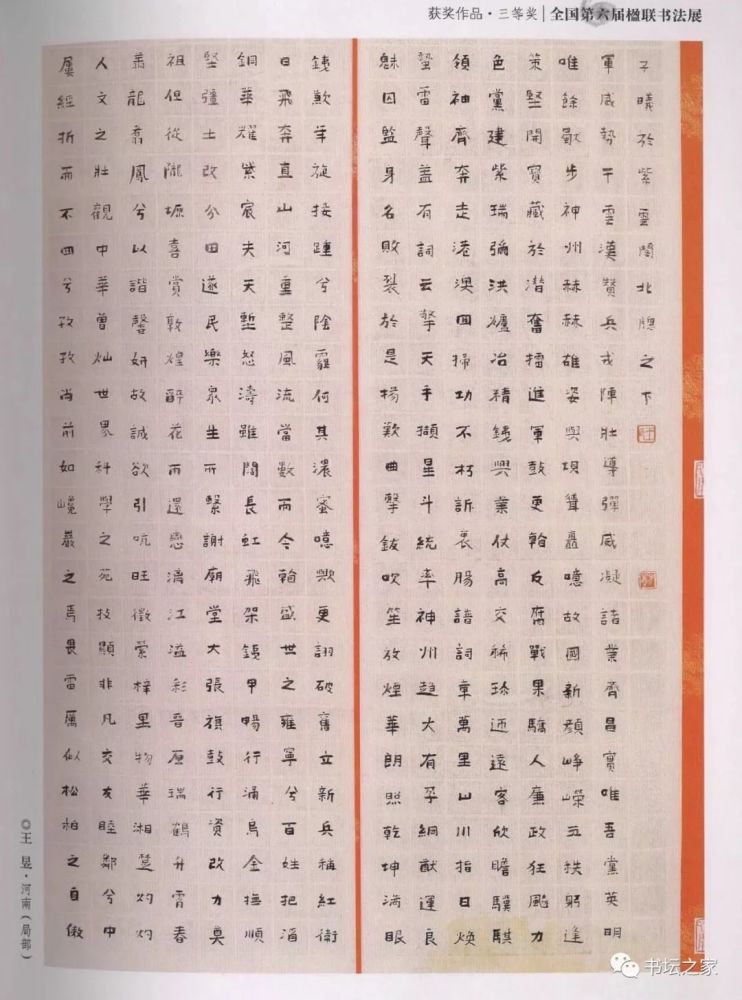 获奖作品·三等奖|全国第六届楹联书法展
屢經折而不回兮孜孜尚前如巉巖之焉畏雷厲似松柏之自傲
人文之壯觀中華曾燦世界科學之苑技顯非凡交友睦鄰兮中
龍翥鳳兮以諧馨妍故誠欲引吭旺徵縈梓里物華湘楚灼灼
祖但從隴塬喜賞敦煌醉花而還戀漓江溢彩晉原瑞鶴升霄春
堅疆土改分田遂民樂眾生所繫謝廟堂大張旗鼓行資改力莫
銅華耀紫宸夫天塹怒濤雖闊長虹飛架鐵甲暢行涌烏金撫順
日飛奔直山河重整風流當數而今翰盛世之雍軍兮百姓把酒
歎旋接踵兮陰霾何其濃蜜噫歟更詡破舊立新兵稱紅衛
魅囚監身名敗裂於是揚歎曲擊鈸吹笙放煙華朗照乾坤滿眼
蟄雷聲蓋有詞云擎天手擷星斗統率神州趨大有孚絅猷運良
領袖齊奔走港澳回掃功不朽訴衷腸語詞章萬里山川指日煥
色黨建紫瑞弥洪爐冶精錢興業仗高交稀珍迺遠客欣瞻驥騏
策堅開寶藏於潛奮擂進軍鼓更翰反腐戰果驕人廉政狂颷力
唯餘歇步神州赫赫雄姿與埧聳矗噫故國新顏崢嶸五秩躬逢
軍威勢干雲漢贊兵戎陣壯導彈威凝諸業齊昌實唯吾黨英明
子曦於紫雲閣北牖之下
◎王昱·河南(局部)
书坛之家